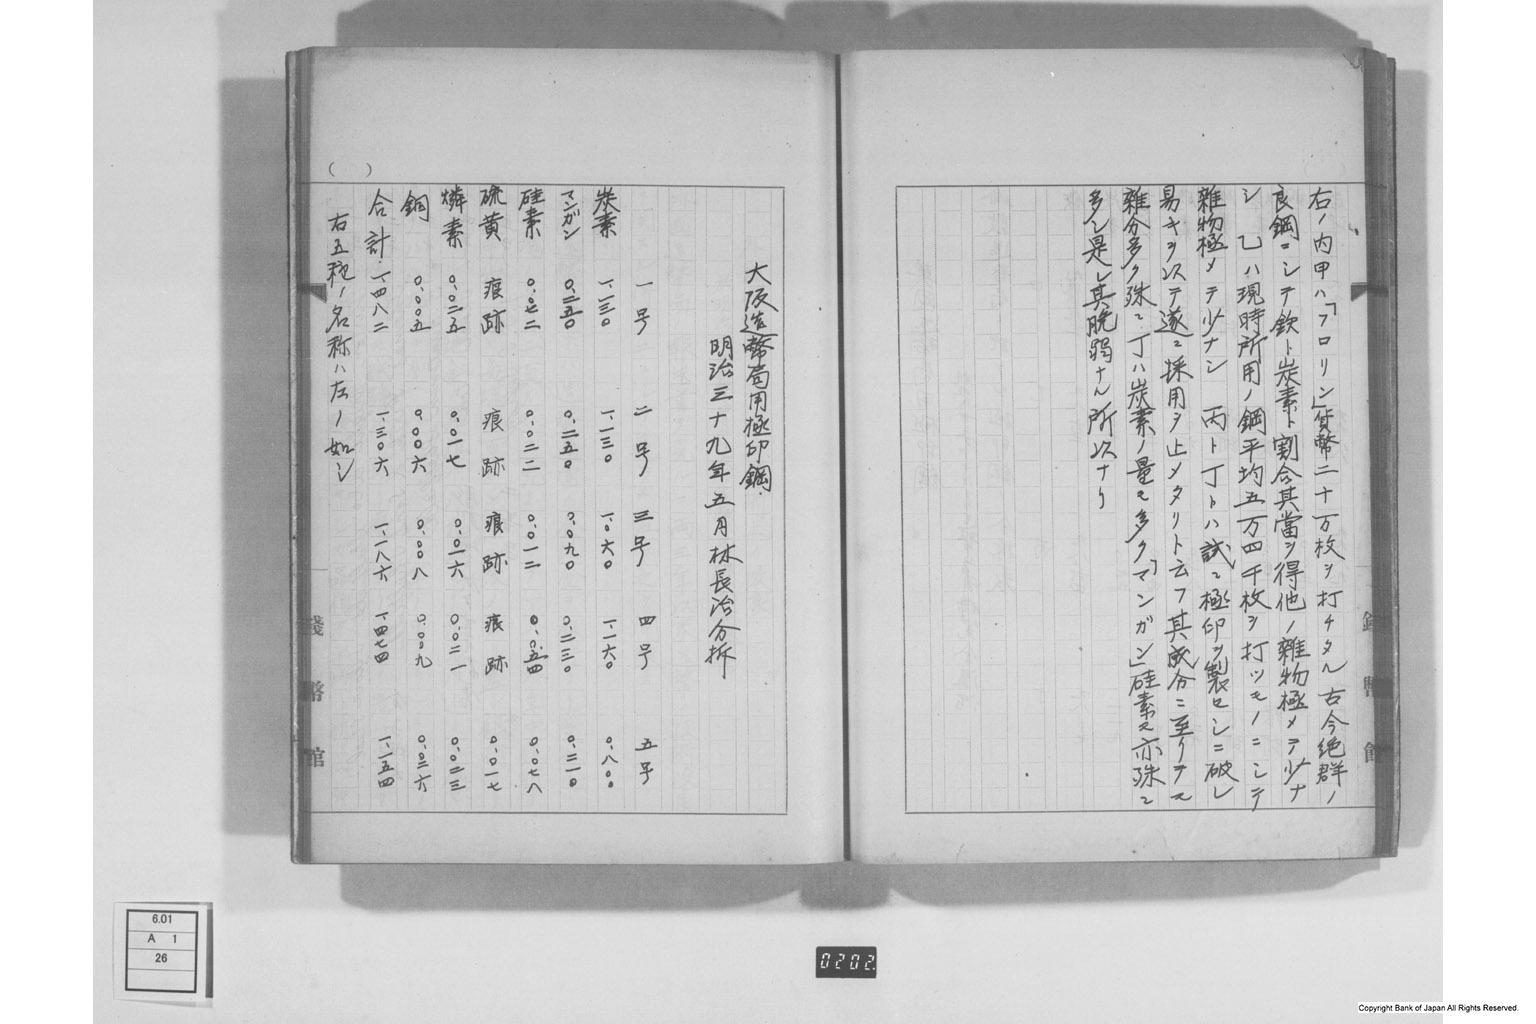 右ノ内甲ハ「フロリン」貨幣二十万枚ヲ打チタル古今絶群ノ
良鋼ニシテ鉄ト炭素ト割合其當ヲ得他ノ雜物極メテ少ナ
シ 乙ハ現時所用ノ鋼平均五万四千枚ヲ打ツモノニシテ
雜物極メテ少ナシ 丙ト丁トハ試ニ極印ヲ製セシニ破レ
易キヲ以テ遂ニ採用ヲ止メタリト云フ其成分ニ至リテモ
雜分多ク殊ニ丁ハ炭素ノ量モ多ク「マンガン」硅素モ亦殊ニ
多シ是レ其脆弱ナル所以ナリ
大阪造幣局用極印鋼
明治三十九年五月林長治分拆
一号 二号 三号 四号 五号
炭素 一、一三〇 一、一三〇 一、〇六〇 一、一六〇 〇、八〇〇
マンガン 〇、二五〇 〇、二五〇 〇、〇九〇 〇、二三〇 〇、二一〇
硅素 〇、〇七二 〇、〇二二 〇、〇一二 〇、〇五四 〇、〇七八
硫黄 痕跡 痕跡 痕跡 痕跡 〇、〇一七
燐素 〇、〇二五 〇、〇一七 〇、〇一六 〇、〇二一 〇、〇二三
銅 〇、〇〇五 〇、〇〇六 〇、〇〇八 〇、〇〇九 〇、〇二六
合計 一、四八二 一、三〇六 一、一八六 一、四七四 一、一五四
右五種ノ名称ハ左ノ如シ
( )
錢幣館
6.01
A 1
26
0202
Copyright Bank of Japan All Rights Reserved.